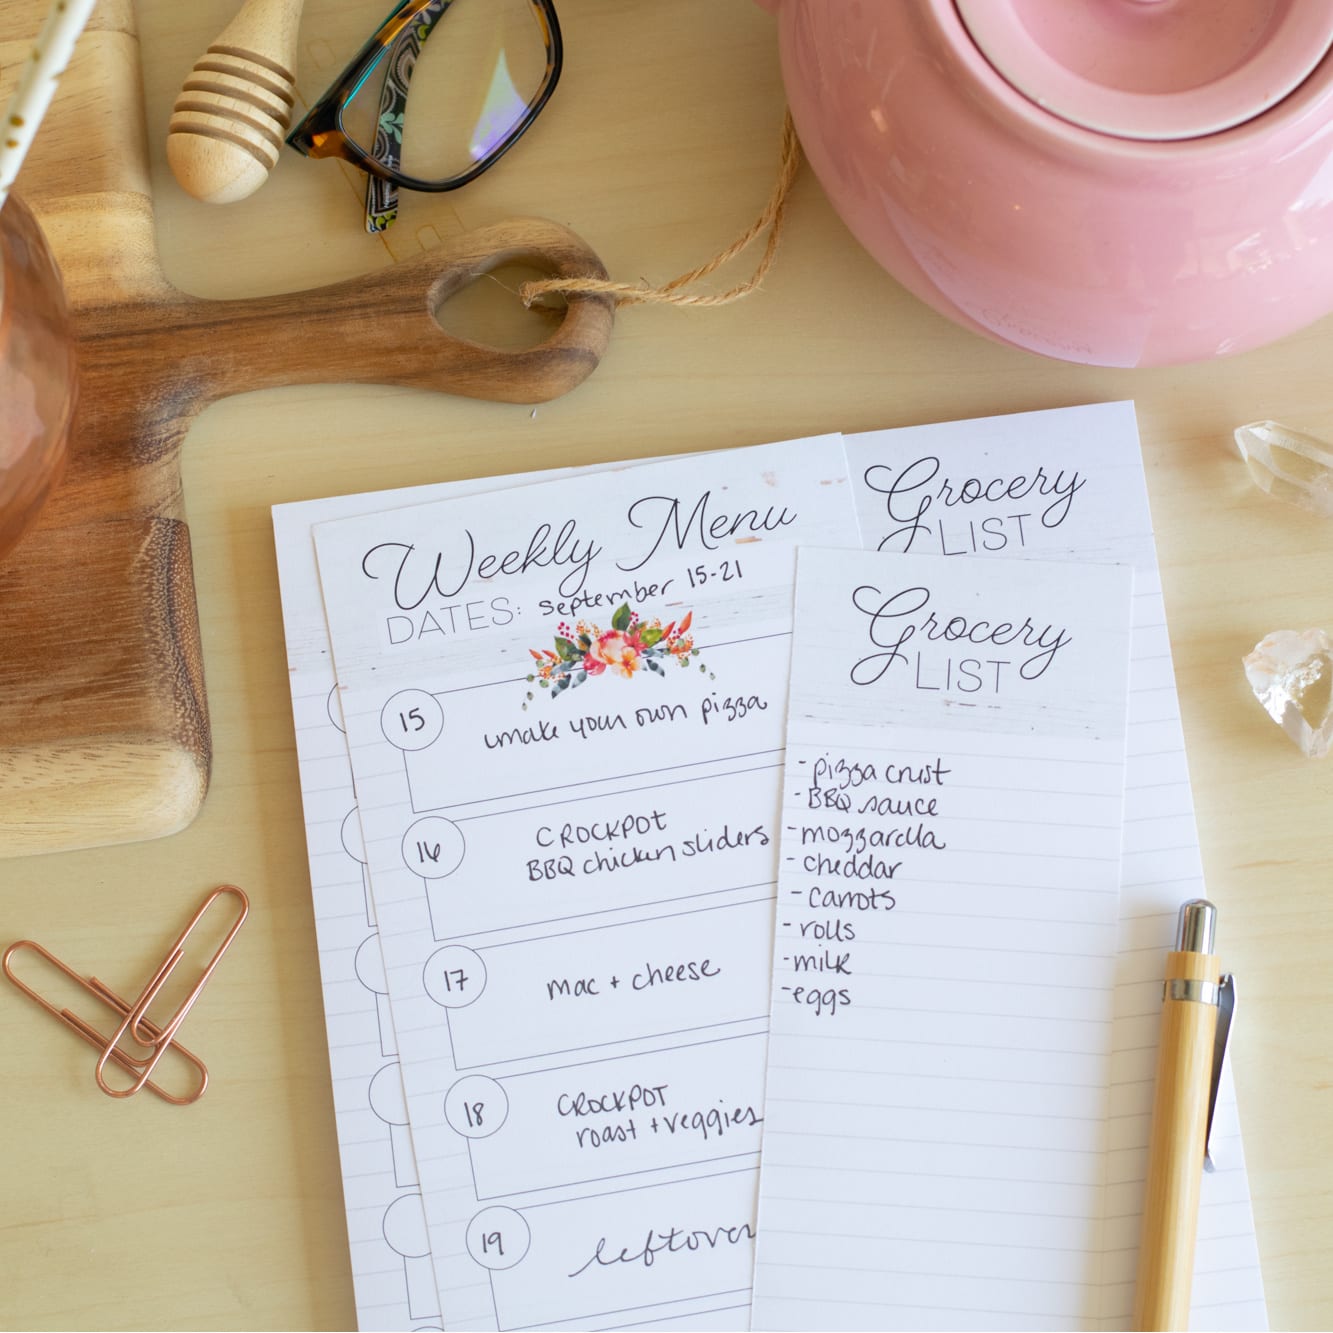 Weekly Menu
DATES: September 15-21
15
make your own pizza
16
CROCKPOT
BBQ chicken sliders
17
mac + cheese
18
CROCKPOT
roast + veggies
19
leftover
Grocery
LIST
Grocery
LIST
- pizza crust
- BBQ sauce
- mozzarella
- cheddar
- carrots
- rolls
- milk
- eggs